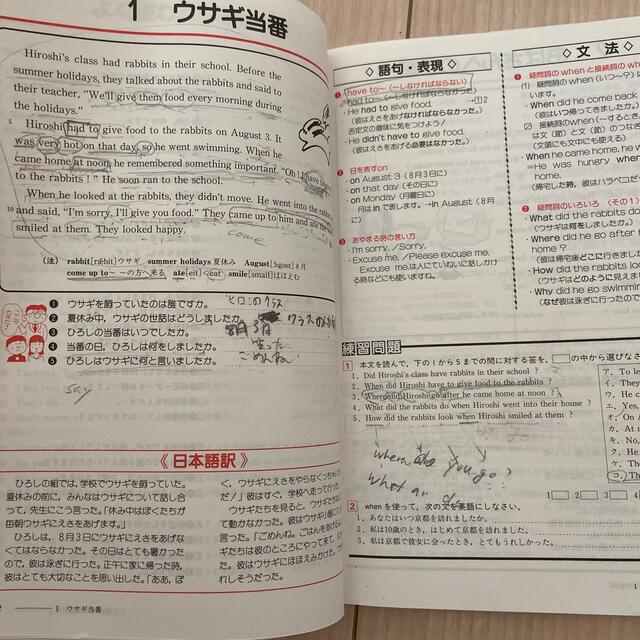 1 ウサギ当番
Hiroshi's class had rabbits in their school. Before the
summer holidays, they talked about the rabbits and said to
their teacher, "We'll give them food every morning during
the holidays."
5 Hiroshi had to give food to the rabbits on August 3. It
was very hot on that day, so he went swimming. When he
came home at noon, he remembered something important. "Oh! I have
to the rabbits!" He soon ran to the school.
When he looked at the rabbits, they didn't move. He went into the
10 and said, "I'm sorry. I'll give you food." They came up to him and ate the
smiled at them. They looked happy.
come
(注) rabbit[rǽbit]ウサギ summer holidays 夏休み August[ɔ́ːgəst] 8月
come up to~ ~の方へ来る ate[eit]<eat smile[smail]ほほえむ
❶ ウサギを飼っていたのは誰ですか。
ヒロシのクラス
❷ 夏休み中、ウサギの世話はどうしましたか。
❸ ひろしの当番はいつでしたか。
8月3日
❹ 当番の日、ひろしは何をしましたか。
❺ ひろしはウサギに何と言いましたか。
ごめんね
say
《日本語訳》
ひろしの組では、学校でウサギを飼っていた。
夏休みの前に、みんなはウサギについて話し合
って、先生にこう言った。「休み中はぼくたちが
毎朝ウサギにえさをあげます。」
ひろしは、8月3日にウサギにえさをあげな
くてはならなかった。その日はとても暑かった
ので、彼は泳ぎに行った。正午に家に帰った時、
彼はとても大切なことを思い出した。「ああ、ぼ
く、ウサギにえさをやらなくっちゃい
だ!」彼はすぐ、学校へ走って行った。
ウサギたちを見ると、ウサギたち
て動かなかった。彼はウサギ小屋に
言った。「ごめんね。ごはんをあげるよ
ギたちは彼のところにやって来て、え
た。彼はウサギにほほえみかけた。ウサ
れしそうだった。
1 ウサギ当番
◇ 語句・表現 ◇
❶ have to~(~しなければならない)
had to~(~しなければならなかった)
・He had to give food.
(彼はえさをあげなければならなかった。)
否定文の意味に気をつけよう!
・He didn't have to give food.
(彼はえさをあげる必要はなかった。)
❷ 日を表すon
・on August 3 (8月3日に)
・on that day (その日に)
・on Monday (月曜日に)
月は in で表します。→in August (8月
に)
❸ あやまる時の言い方
・I'm sorry. /Sorry.
・Excuse me. /Please excuse me.
Excuse me.は人にていねいに話しかけ
る時などにも使いますね。
◇ 文 法 ◇
❶ 疑問詞の when と接続詞の wh
(1) 疑問詞のwhen(いつ~?)
います。
・When did he come back
(彼はいつ帰ってきましたか。)
・When he came home, he w
=He was hungry when
home.
(帰宅した時、彼はハラペコだっ
❷ 疑問詞のいろいろ (その1)
・What did the rabbits do
(ウサギは何をしましたか。)
・Where did he go after
home ?
(彼は帰宅後どこに行きました
・How did the rabbits look
(ウサギはどのように見えま
・Why did he go swimming
(なぜ彼は泳ぎに行ったので
練習問題
1 本文を読んで、下の1から5までの問に対する答を、□の中から選びなさ
1. Did Hiroshi's class have rabbits in their school ?
2. When did Hiroshi have to give food to the rabbits ?
3. Where did Hiroshi go after he came home at noon ?
4. What did the rabbits do when Hiroshi went into their house ?
5. How did the rabbits look when Hiroshi smiled at them ?
ア. To
イ. They
ウ. He c
エ. Yes,
オ. On A
カ. At n
キ. No,
ク. The
コ. The
you go?
1□ 2□ 3□ 4
2 when を使って、次の文を英語にしなさい。
1. あなたはいつ京都を訪れましたか。
2. 私は10歳のとき、はじめて京都を訪れました。
3. 私は京都で彼女に会ったとき、とてもうれしかった。